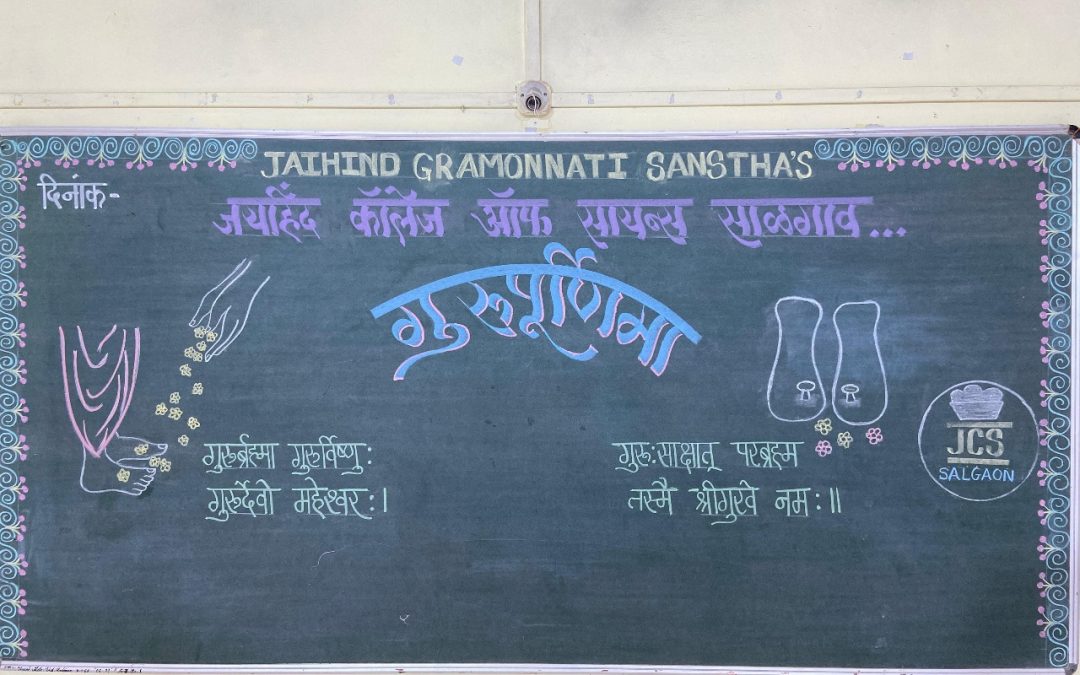 JAIHIND GRAMONNATI SANSTHA'S
दिनांक-
जयहिंद कॉलेज ऑफ सायन्स साळगाव...
गुरुपूर्णिमा
गुरुर्ब्रह्मा गुरुर्विष्णुः
गुरुर्देवो महेश्वरः।
गुरुःसाक्षात् परब्रह्म
तस्मै श्रीगुरवे नमः॥
JCS
SALGAON